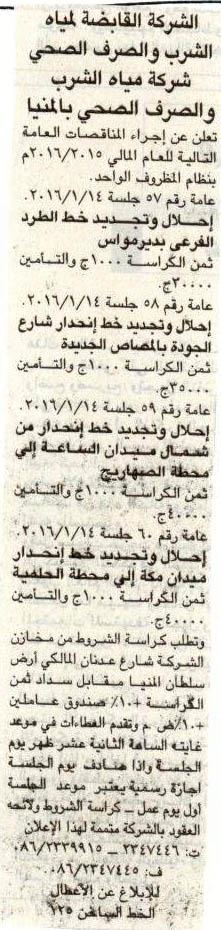 الشركة القابضة لمياه
الشرب والصرف الصحي
شركة مياه الشرب
والصرف الصحي بالمنيا
تعلن عن إجراء المناقصات العامة
التالية للعام المالي ٢٠١٦/٢٠١٥م
بنظام المظروف الواحد.
عامة رقم ٥٧ جلسة ٢٠١٦/١/١٤.
إحلال وتجديد خط الطرد
الفرعى بديرمواس
ثمن الكراسة ١٠٠٠ج والتأمين
٢٠٠٠٠ج.
عامة رقم ٥٨ جلسة ٢٠١٦/١/١٤.
إحلال وتجديد خط إنحدار شارع
الجودة بالمصاص الجديدة
ثمن الكراسية ١٠٠٠ج والتأمين
٣٥٠٠٠ج.
عامة رقم ٥٩ جلسة ٢٠١٦/١/١٤.
إحلال وتجديد خط إنحدار من
شمال ميدان الساعة إلي
محطة الصهاريج
ثمن الكراسة ١٠٠٠ج والتأمين
٤٠٠٠٠ج.
عامة رقم ٦٠ جلسة ٢٠١٦/١/١٤.
إحلال وتجديد خط إنحدار
ميدان مكة إلي محطة الحلمية
ثمن الكراسة ١٠٠٠ج والتأمين
٤٠٠٠٠ج.
وتطلب كراسة الشروط من مخازن
الشركة شارع عدنان المالكي أرض
سلطان المنيا مقابل سداد ثمن
الكراسة +١٠٪ صندوق عاملين
+١٠٪ض م وتقدم العطاءات في موعد
غايته الساعة الثانية عشر ظهر يوم
الجلسة وإذا صادف يوم الجلسة
اجازة رسمية يعتبر موعد الجلسة
أول يوم عمل - كراسة الشروط ولائحه
العقود بالشركة متممة لهذا الإعلان
ت: ٢٣٤٧٤٤٦ - ٠٨٦/٢٣٣٩٩١٥
ف: ٠٨٦/٢٣٤٧٤٤٥
للإبلاغ عن الأعطال
الخط الساخن ١٢٥